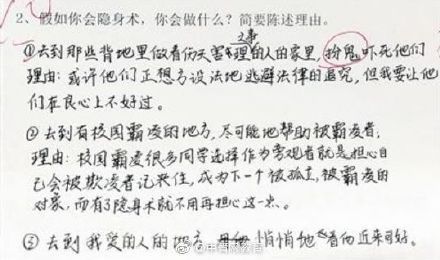 2、假如你会隐身术，你会做什么？简要陈述理由。
之事
①去到那些背地里做着伤天害理的人的家里，扮鬼吓死他们
理由：或许他们正想方设法地逃避法律的追究，但我要让他
们在良心上不好过。
②去到有校园霸凌的地方，尽可能地帮助被霸凌者，
理由：校园霸凌很多同学选择作为旁观者就是担心自
己会被欺凌者记来住，成为下一个被孤立，被霸凌的
对象，而有了隐身术就不用再担心这一点。
③去到我爱的人的地方 悄悄地看他近来可好。